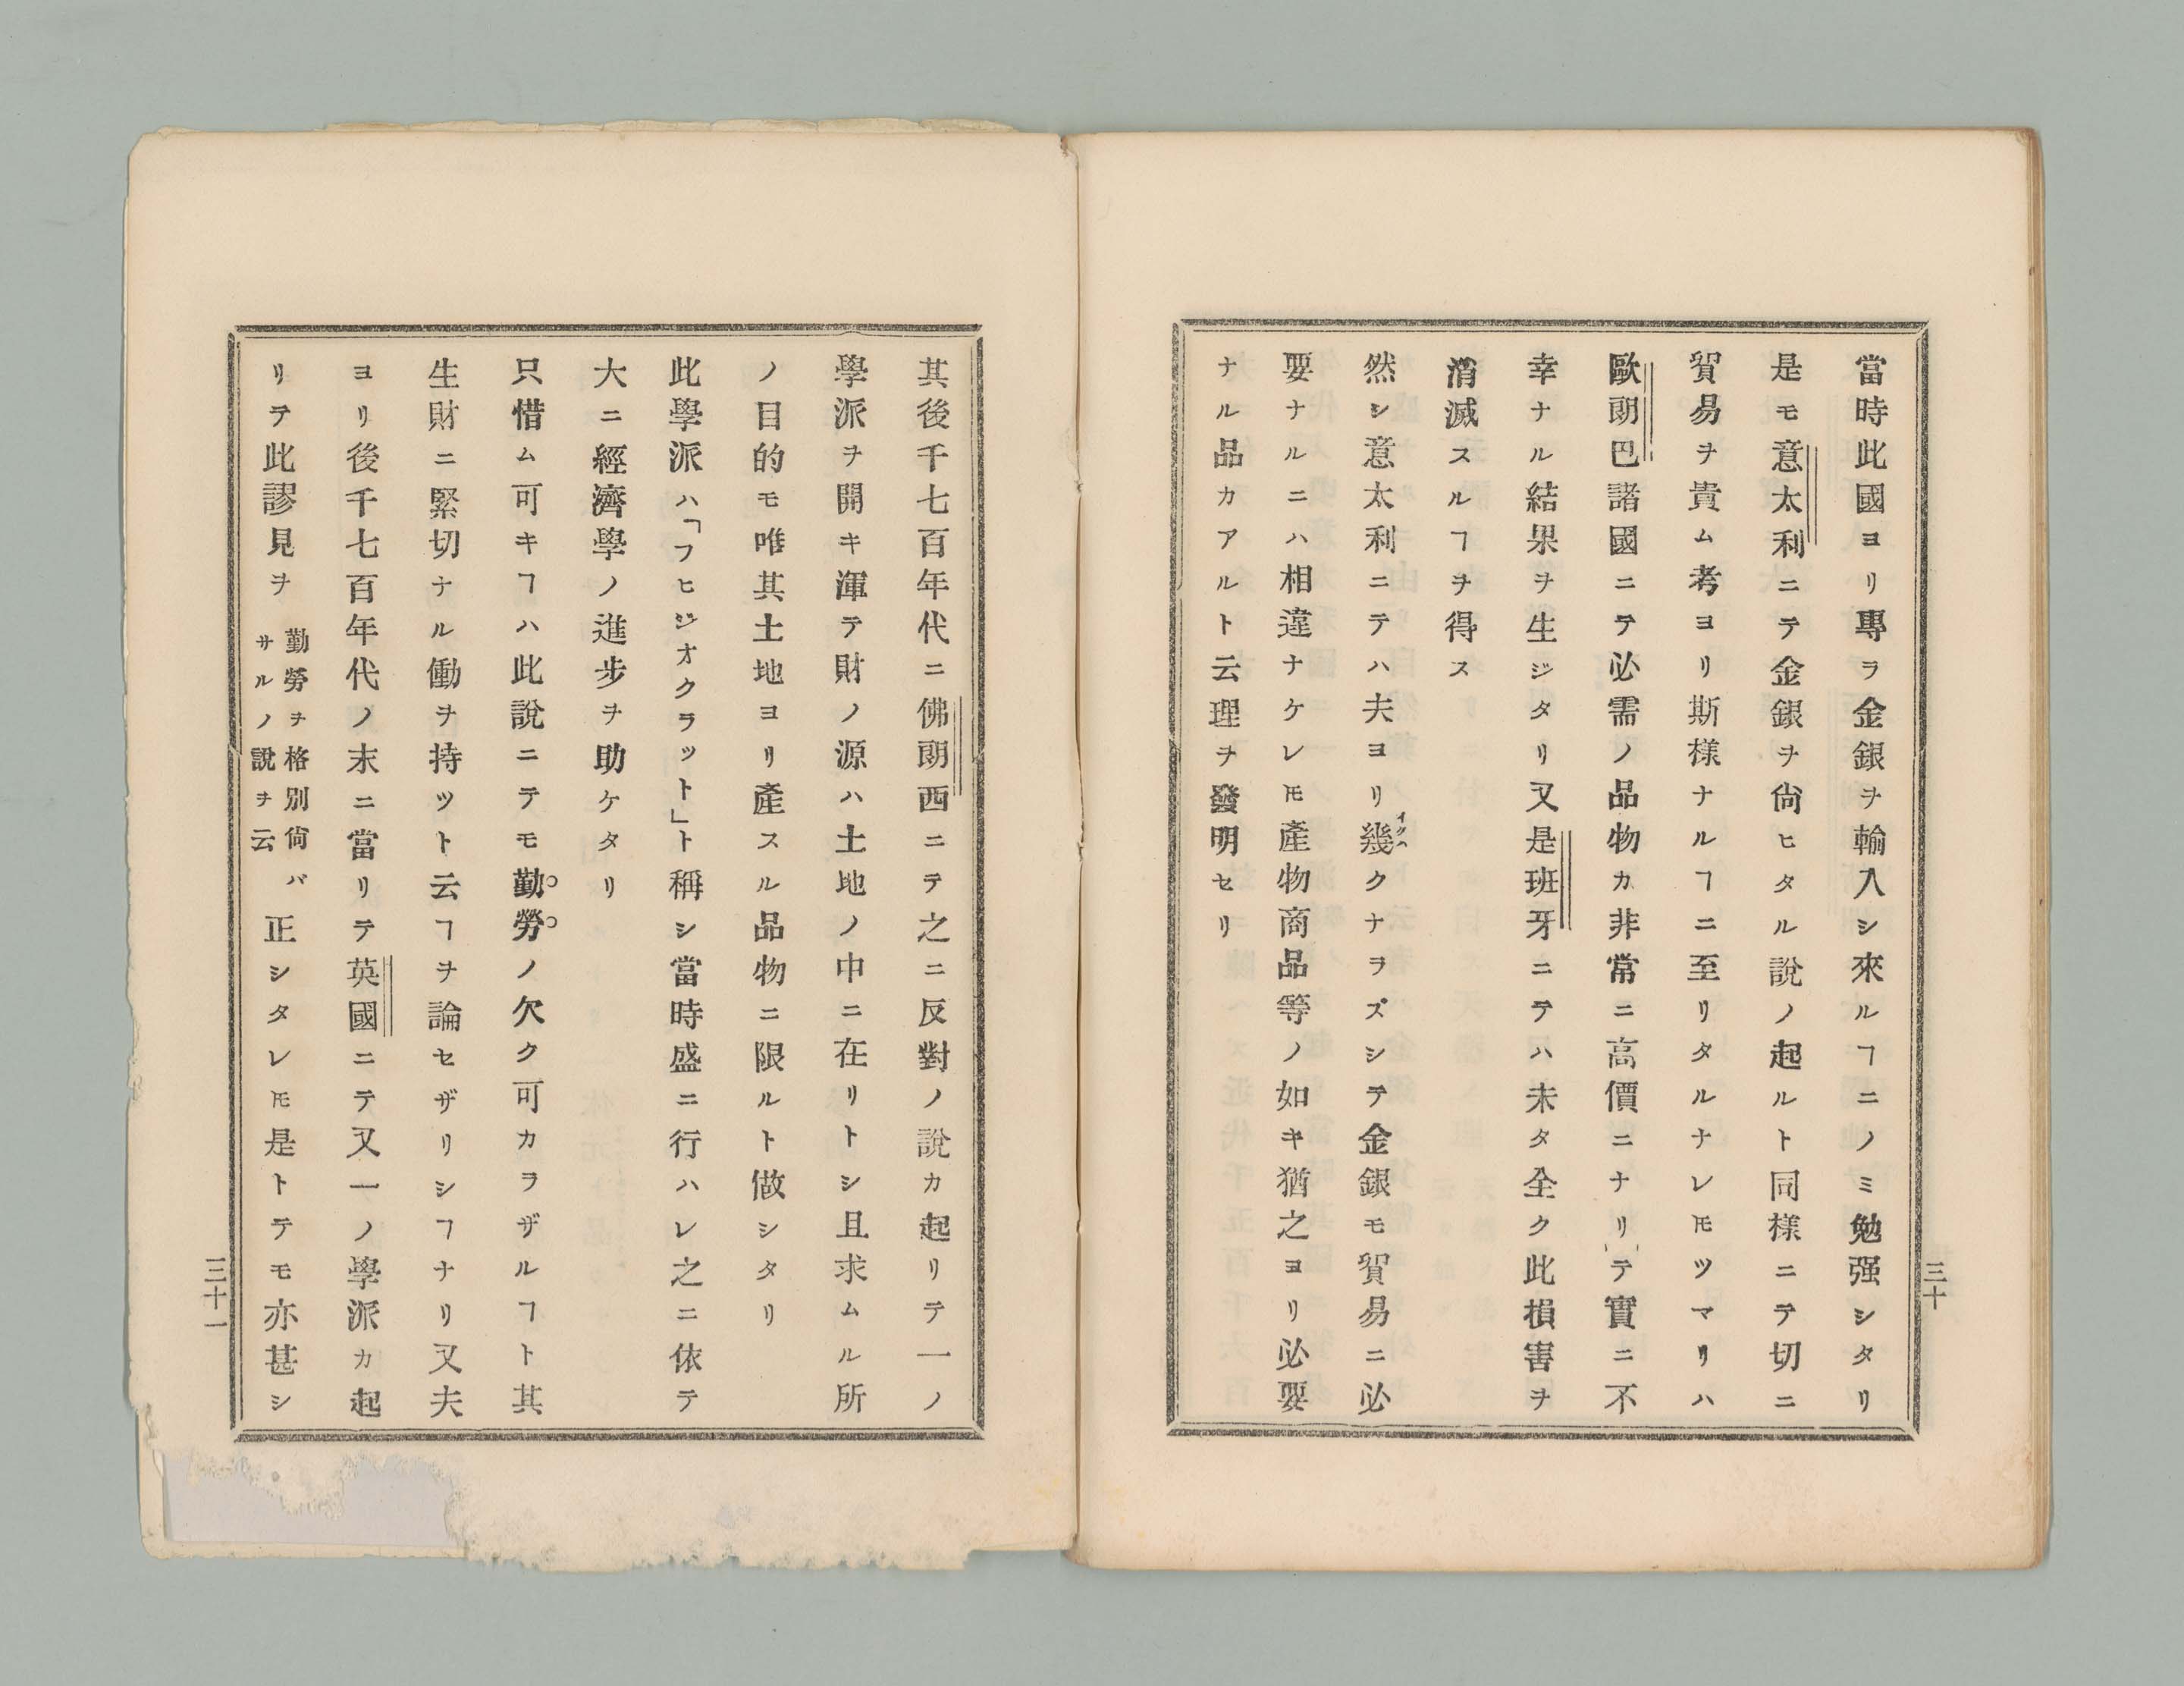 當時此國ヨリ專ラ金銀ヲ輸入シ來ルヿニノミ勉强シタリ
是モ意太利ニテ金銀ヲ尙ヒタル說ノ起ルト同樣ニテ切ニ
貿易ヲ貴ム考ヨリ斯樣ナルヿニ至リタルナレ𪜈ツマリハ
歐朗巴諸國ニテ必需ノ品物カ非常ニ高價ニナリテ實ニ不
幸ナル結果ヲ生ジタリ又是班牙ニテハ未タ全ク此損害ヲ
消滅スルヿヲ得ス
然シ意太利ニテハ夫ヨリ幾クナヲズシテ金銀モ貿易ニ必
イクハ
要ナルニハ相違ナケレ𪜈產物商品等ノ如キ猶之ヨリ必要
ナル品カアルト云理ヲ發明セリ
三十
其後千七百年代ニ佛朗西ニテ之ニ反對ノ說カ起リテ一ノ
學派ヲ開キ渾テ財ノ源ハ土地ノ中ニ在リトシ且求ムル所
ノ目的モ唯其土地ヨリ產スル品物ニ限ルト做シタリ
此學派ハ「フヒジオクラット」ト稱シ當時盛ニ行ハレ之ニ依テ
大ニ經濟學ノ進步ヲ助ケタリ
只惜ム可キヿハ此說ニテモ勤勞ノ欠ク可カヲザルヿト其
生財ニ緊切ナル働ヲ持ツト云ヿヲ論セザリシヿナリ又夫
ヨリ後千七百年代ノ末ニ當リテ英國ニテ又一ノ學派カ起
リテ此謬見ヲ勤勞ヲ格別尙バサルノ說ヲ云正シタレ𪜈是トテモ亦甚シ
三十一